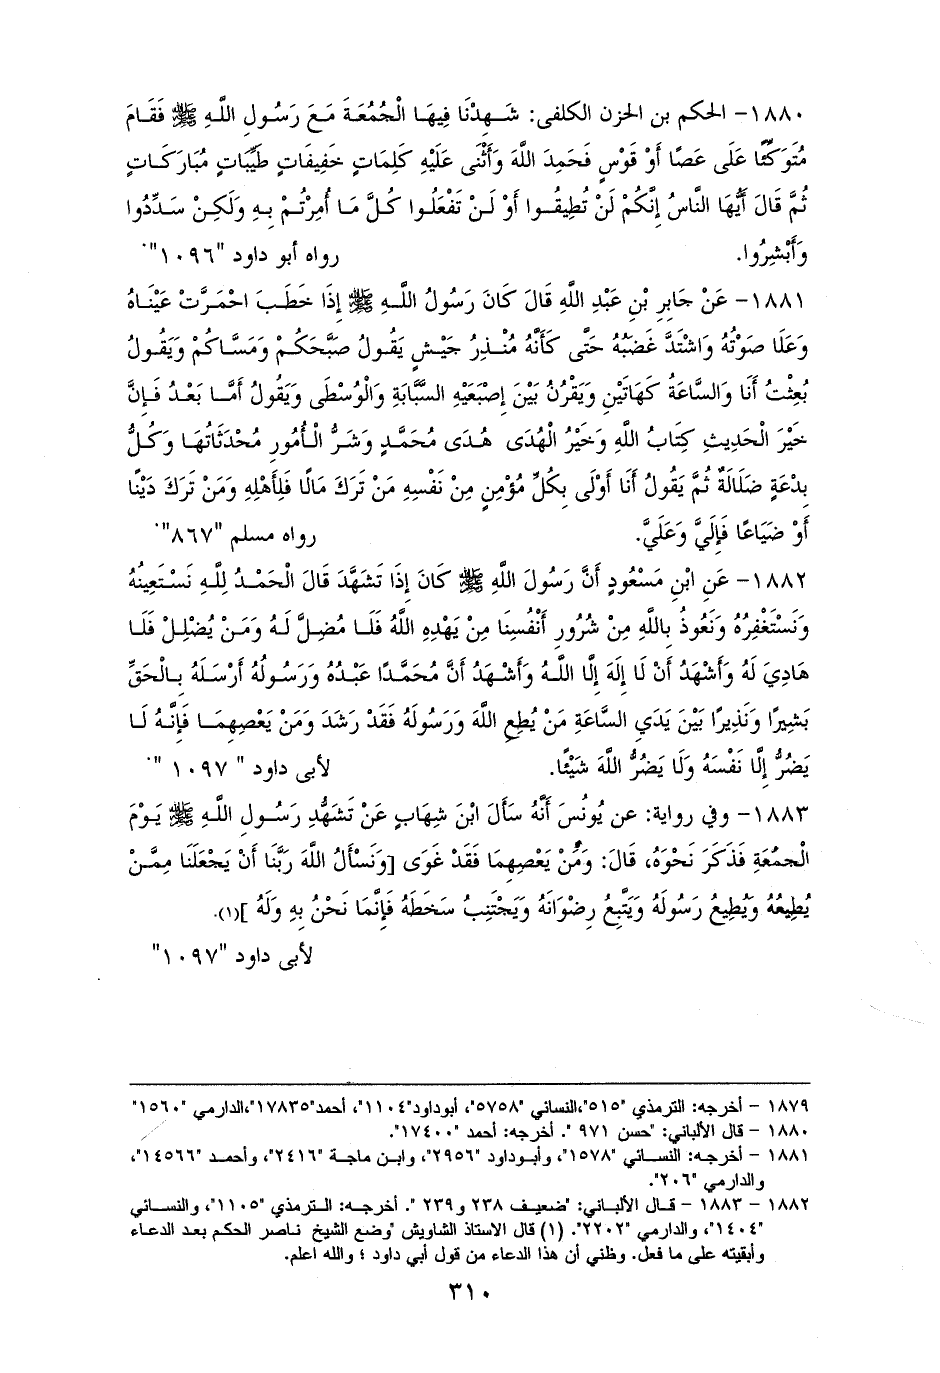 ١٨٨٠- الحكم بن الحزن الكلفى: شَهِدْنَا فِيهَا الْجُمُعَةَ مَعَ رَسُولِ اللَّهِ ﷺ فَقَامَ
مُتَوَكِّئًا عَلَى عَصًا أَوْ قَوْسٍ فَحَمِدَ اللَّهَ وَأَثْنَى عَلَيْهِ كَلِمَاتٍ خَفِيفَاتٍ طَيِّبَاتٍ مُبَارَكَاتٍ
ثُمَّ قَالَ أَيُّهَا النَّاسُ إِنَّكُمْ لَنْ تُطِيقُوا أَوْ لَنْ تَفْعَلُوا كُلَّ مَا أُمِرْتُمْ بِهِ وَلَكِنْ سَدِّدُوا
وَأَبْشِرُوا. رواه أبو داود "١٠٩٦".
١٨٨١- عَنْ جَابِرِ بْنِ عَبْدِ اللَّهِ قَالَ كَانَ رَسُولُ اللَّهِ ﷺ إِذَا خَطَبَ احْمَرَّتْ عَيْنَاهُ
وَعَلَا صَوْتُهُ وَاشْتَدَّ غَضَبُهُ حَتَّى كَأَنَّهُ مُنْذِرُ جَيْشٍ يَقُولُ صَبَّحَكُمْ وَمَسَّاكُمْ وَيَقُولُ
بُعِثْتُ أَنَا وَالسَّاعَةُ كَهَاتَيْنِ وَيَقْرُنُ بَيْنَ إِصْبَعَيْهِ السَّبَّابَةِ وَالْوُسْطَى وَيَقُولُ أَمَّا بَعْدُ فَإِنَّ
خَيْرَ الْحَدِيثِ كِتَابُ اللَّهِ وَخَيْرُ الْهُدَى هُدَى مُحَمَّدٍ وَشَرُّ الْأُمُورِ مُحْدَثَاتُهَا وَكُلُّ
بِدْعَةٍ ضَلَالَةٌ ثُمَّ يَقُولُ أَنَا أَوْلَى بِكُلِّ مُؤْمِنٍ مِنْ نَفْسِهِ مَنْ تَرَكَ مَالًا فَلِأَهْلِهِ وَمَنْ تَرَكَ دَيْنًا
أَوْ ضَيَاعًا فَإِلَيَّ وَعَلَيَّ. رواه مسلم "٨٦٧".
١٨٨٢- عَنِ ابْنِ مَسْعُودٍ أَنَّ رَسُولَ اللَّهِ ﷺ كَانَ إِذَا تَشَهَّدَ قَالَ الْحَمْدُ لِلَّهِ نَسْتَعِينُهُ
وَنَسْتَغْفِرُهُ وَنَعُوذُ بِاللَّهِ مِنْ شُرُورِ أَنْفُسِنَا مِنْ يَهْدِهِ اللَّهُ فَلَا مُضِلَّ لَهُ وَمَنْ يُضْلِلْ فَلَا
هَادِيَ لَهُ وَأَشْهَدُ أَنْ لَا إِلَهَ إِلَّا اللَّهُ وَأَشْهَدُ أَنَّ مُحَمَّدًا عَبْدُهُ وَرَسُولُهُ أَرْسَلَهُ بِالْحَقِّ
بَشِيرًا وَنَذِيرًا بَيْنَ يَدَيِ السَّاعَةِ مَنْ يُطِعِ اللَّهَ وَرَسُولَهُ فَقَدْ رَشَدَ وَمَنْ يَعْصِهِمَا فَإِنَّهُ لَا
يَضُرُّ إِلَّا نَفْسَهُ وَلَا يَضُرُّ اللَّهَ شَيْئًا. لأبى داود " ١٠٩٧ ".
١٨٨٣- وفي رواية: عن يُونُسَ أَنَّهُ سَأَلَ ابْنَ شِهَابٍ عَنْ تَشَهُّدِ رَسُولِ اللَّهِ ﷺ يَوْمَ
الْجُمُعَةِ فَذَكَرَ نَحْوَهُ، قَالَ: وَمَنْ يَعْصِهِمَا فَقَدْ غَوَى [وَنَسْأَلُ اللَّهَ رَبَّنَا أَنْ يَجْعَلَنَا مِمَّنْ
يُطِيعُهُ وَيُطِيعُ رَسُولَهُ وَيَتَّبِعُ رِضْوَانَهُ وَيَجْتَنِبُ سَخَطَهُ فَإِنَّمَا نَحْنُ بِهِ وَلَهُ ](١).
لأبى داود "١٠٩٧"
١٨٧٩ - أخرجه: الترمذي "٥١٥"،النسائي "٥٧٥٨"، أبوداود"١١٠٤"، أحمد"١٧٨٣٥"،الدارمي "١٥٦٠"
١٨٨٠ - قال الألباني: "حسن ٩٧١ ". أخرجه: أحمد "١٧٤٠٠".
١٨٨١ - أخرجه: النسائي "١٥٧٨"، وأبوداود "٢٩٥٦"، وابن ماجة "٢٤١٦"، وأحمد "١٤٥٦٦"،
والدارمي "٢٠٦".
١٨٨٢ - ١٨٨٣ - قال الألباني: "ضعيف ٢٣٨ و٢٣٩ ". أخرجه: الترمذي "١١٠٥"، والنسائي
"١٤٠٤"، والدارمي "٢٢٠٢". (١) قال الاستاذ الشاويش "وضع الشيخ ناصر الحكم بعد الدعاء
وأبقيته على ما فعل. وظني أن هذا الدعاء من قول أبي داود ؛ والله اعلم.
٣١٠